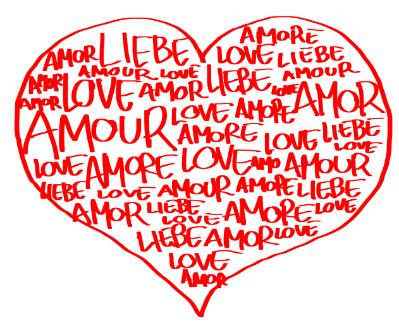 AMORE
AMOR LIEBE LOVE LIEBE
AMOR AMOUR LOVE AMOUR
AMOR LOVE AMOR LIEBE LOVE AMOR
AMOUR LOVE AMORE
AMORE LOVE LIEBE
LOVE
LOVE AMORE LOVE AMO AMOUR
LIEBE LOVE AMOUR AMORE LIEBE
AMOR LIEBE AMORE LOVE
LOVE
LIEBE AMOR LOVE
LOVE
AMOR